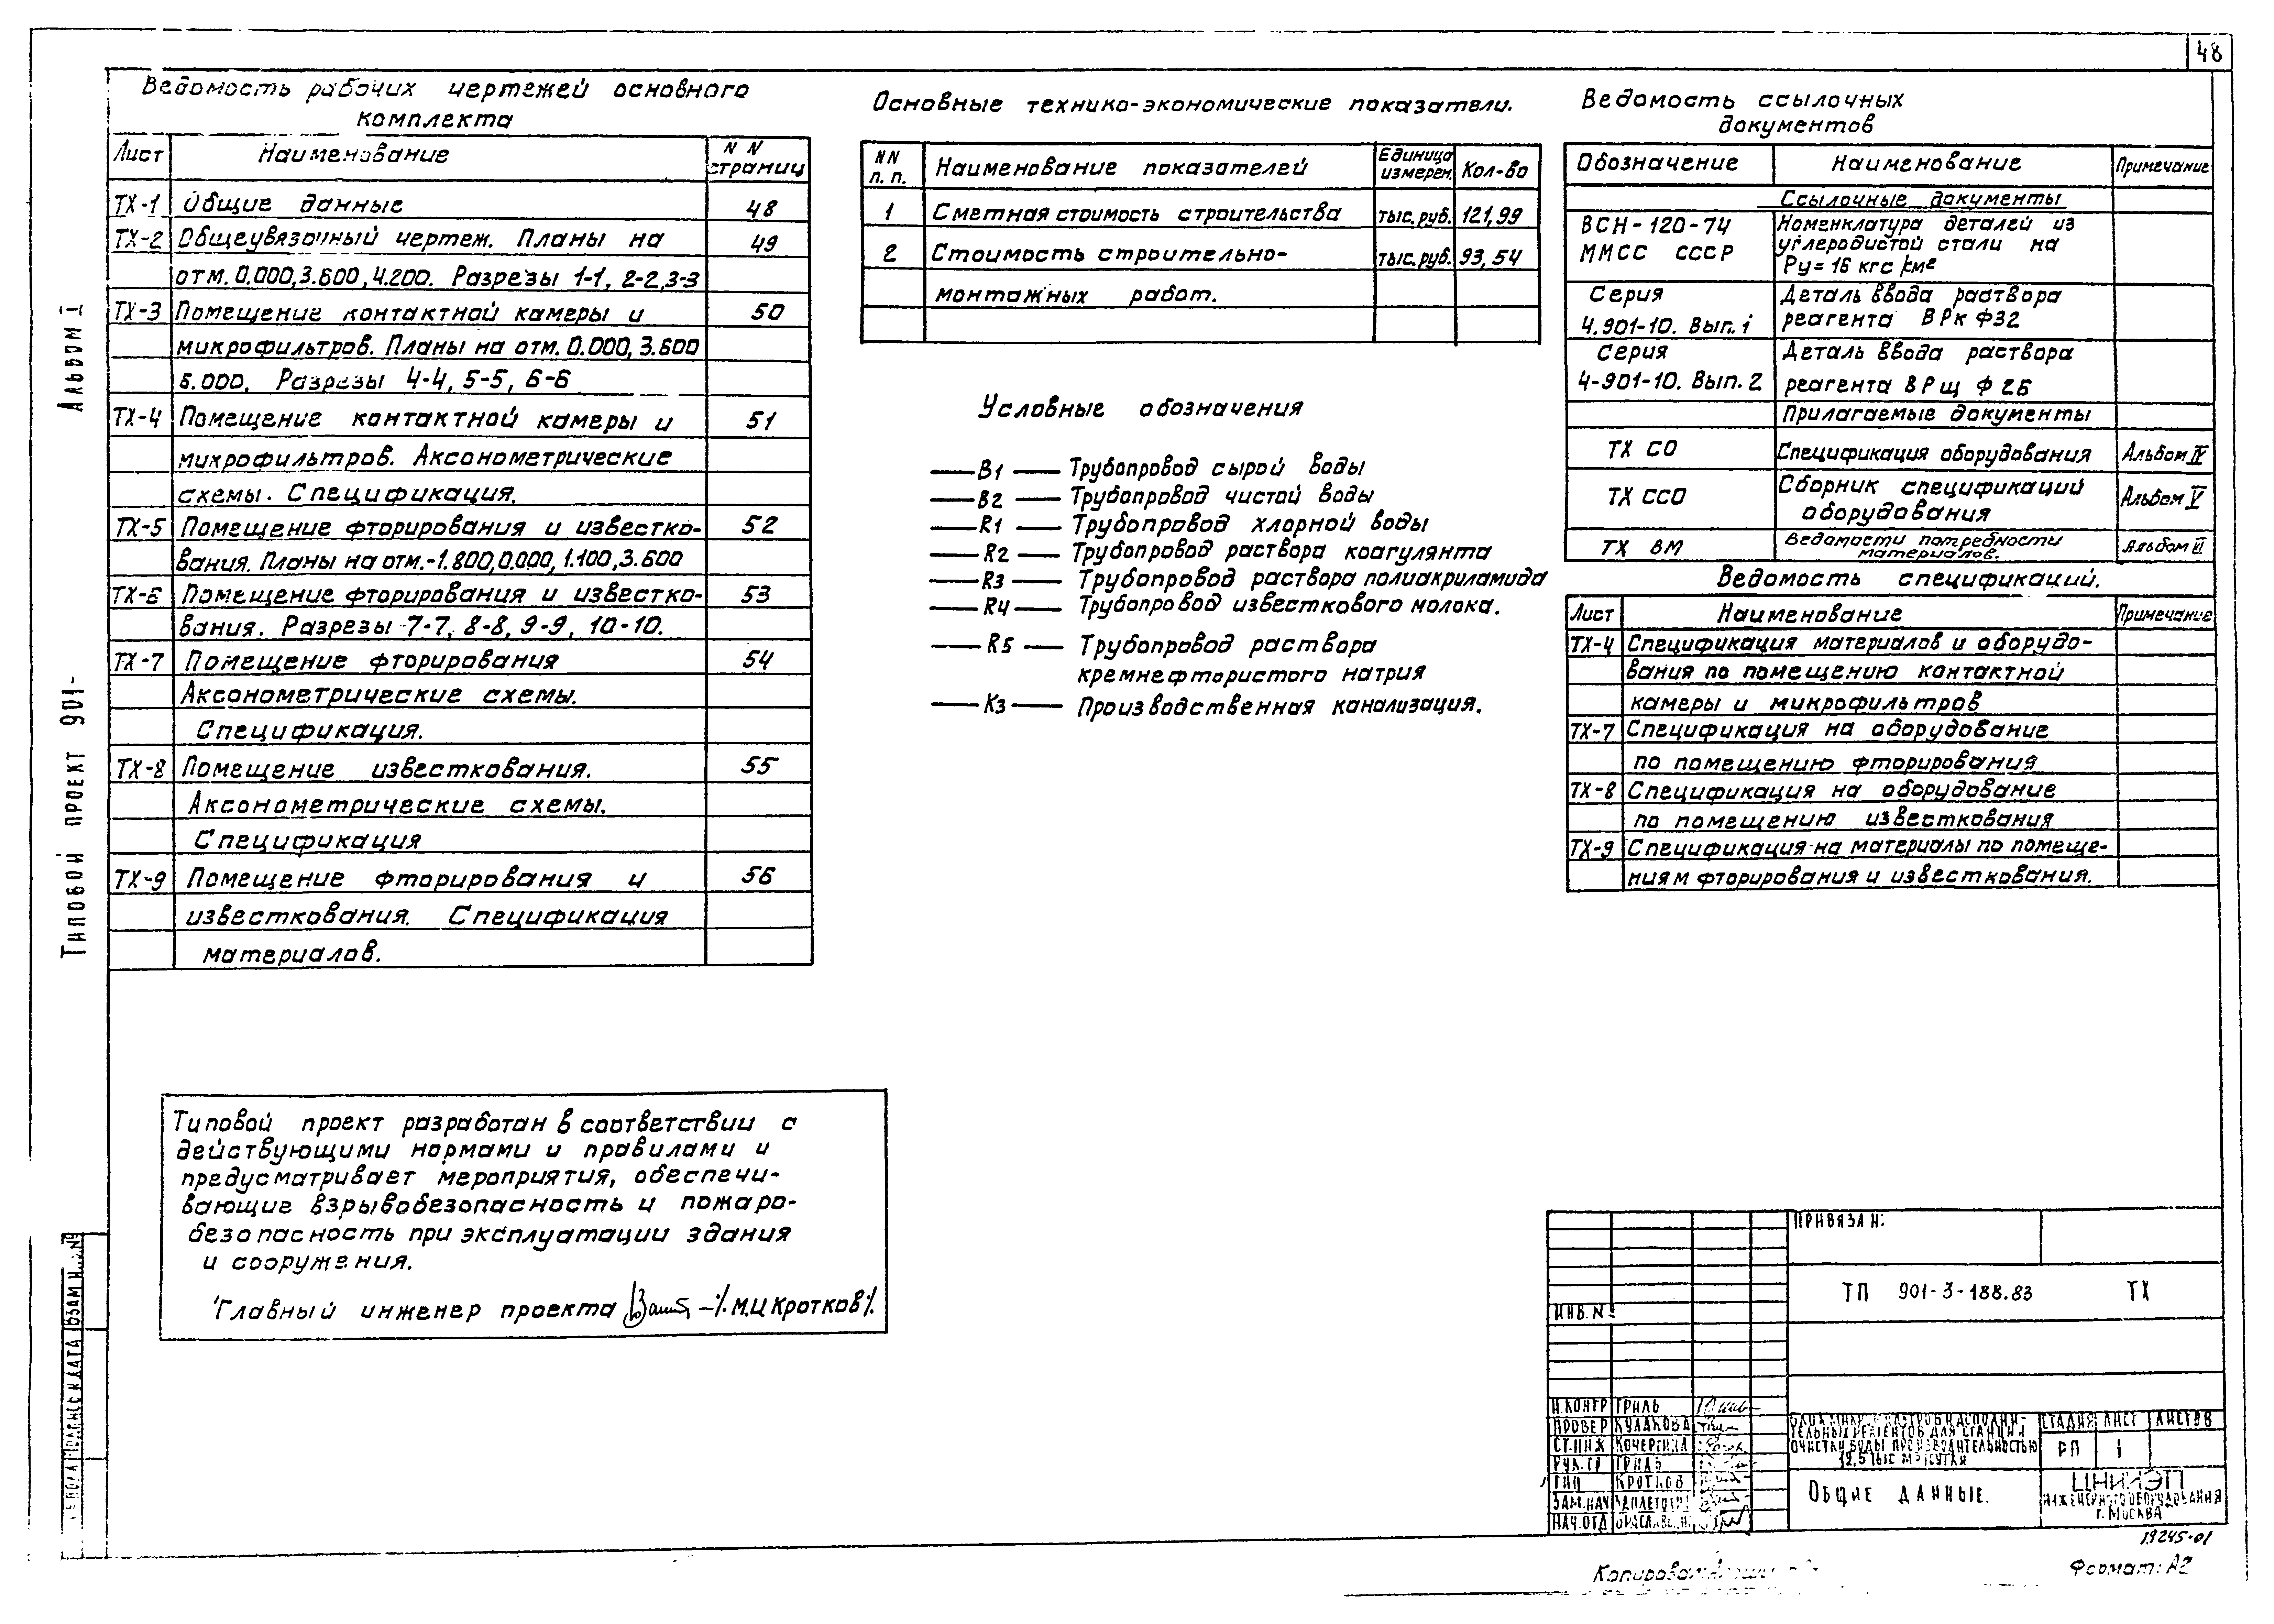 48
Ведомость рабочих чертежей основного
комплекта
Лист Наименование N N страниц
ТХ-1 Общие данные 48
ТХ-2 Общеувязочный чертеж. Планы на 49
отм. 0.000, 3.600, 4.200. Разрезы 1-1, 2-2, 3-3
ТХ-3 Помещение контактной камеры и 50
микрофильтров. Планы на отм. 0.000, 3.600
6.000. Разрезы 4-4, 5-5, 6-6
ТХ-4 Помещение контактной камеры и 51
микрофильтров. Аксонометрические
схемы. Спецификация.
ТХ-5 Помещение фторирования и известко- 52
вания. Планы на отм.-1.800, 0.000, 1.100, 3.600
ТХ-6 Помещение фторирования и известко- 53
вания. Разрезы 7-7, 8-8, 9-9, 10-10.
ТХ-7 Помещение фторирования 54
Аксонометрические схемы.
Спецификация.
ТХ-8 Помещение известкования. 55
Аксонометрические схемы.
Спецификация
ТХ-9 Помещение фторирования и 56
известкования. Спецификация
материалов.
Основные технико-экономические показатели.
NN п. п. Наименование показателей Единица измерен. Кол-во
1 Сметная стоимость строительства тыс. руб. 121,99
2 Стоимость строительно- тыс. руб. 93,54
монтажных работ.
Условные обозначения
В1 Трубопровод сырой воды
В2 Трубопровод чистой воды
R1 Трубопровод хлорной воды
R2 Трубопровод раствора коагулянта
R3 Трубопровод раствора полиакриламида
R4 Трубопровод известкового молока.
R5 Трубопровод раствора
кремнефтористого натрия
К3 Производственная канализация.
Ведомость ссылочных
документов
Обозначение Наименование Примечание
Ссылочные документы
ВСН-120-74 Номенклатура деталей из
ММСС СССР углеродистой стали на
Ру = 16 кгс/см²
Серия Деталь ввода раствора
4.901-10. Вып. 1 реагента ВРк Ф32
Серия Деталь ввода раствора
4-901-10. Вып. 2 реагента ВРщ Ф 26
Прилагаемые документы
ТХ СО Спецификация оборудования Альбом IV
ТХ ССО Сборник спецификаций Альбом V
оборудования
ТХ ВМ Ведомости потребности Альбом
материалов.
Ведомость спецификаций.
Лист Наименование Примечание
ТХ-4 Спецификация материалов и оборудо-
вания по помещению контактной
камеры и микрофильтров
ТХ-7 Спецификация на оборудование
по помещению фторирования
ТХ-8 Спецификация на оборудование
по помещению известкования
ТХ-9 Спецификация на материалы по помеще-
ниям фторирования и известкования.
Альбом I
Типовой проект 901-
Типовой проект разработан в соответствии с
действующими нормами и правилами и
предусматривает мероприятия, обеспечи-
вающие взрывобезопасность и пожаро-
безопасность при эксплуатации здания
и сооружения.
Главный инженер проекта /М.Ц Кротков/.
Привязан:
Инв. №
ТП 901-3-188.83 ТХ
Н.контр Гриль
Провер Кулакова
Ст.инж Кочергина
Рук. гр Гриль
ГИП Кротков
Зам.нач
Нач.отд
тельных реагентов для станции
очистки воды производительностью
12,5 тыс м³/сутки
Стадия Лист Листов
РП 1
Общие данные.
ЦНИИЭП
инженерного оборудования
г. Москва
19245-01
Формат: А2